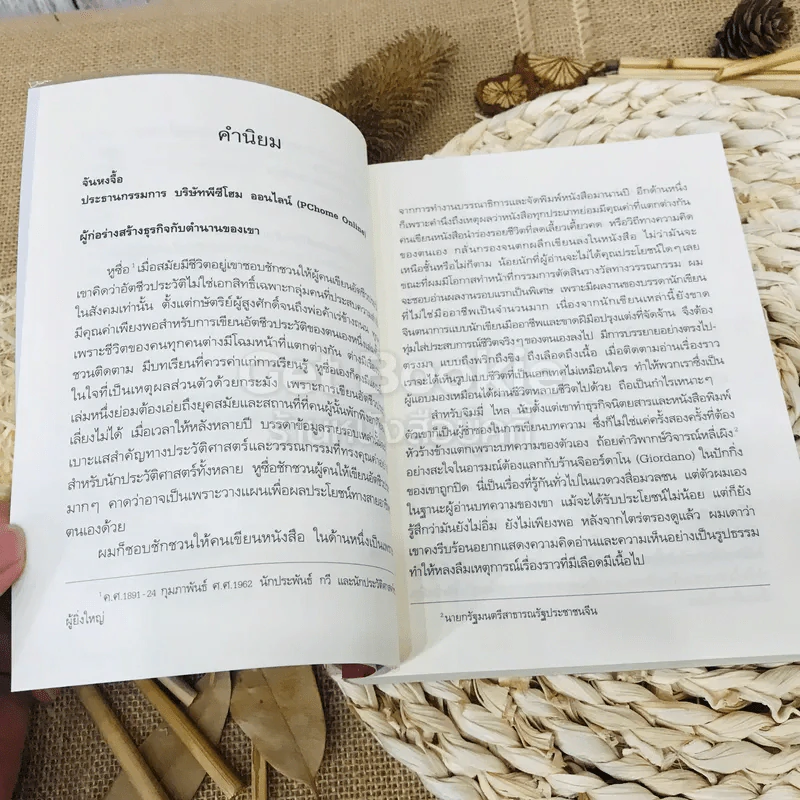 คำนิยม
จันหงจื้อ
ประธานกรรมการ บริษัทพีซีโฮม ออนไลน์ (PChome Online)
ผู้ก่อร่างสร้างธุรกิจกับตำนานของเขา
หูซื่อ¹ เมื่อสมัยมีชีวิตอยู่เขาชอบชักชวนให้ผู้คนเขียนอัตชีวประวัติ
เขาคิดว่าอัตชีวประวัติไม่ใช่เอกสิทธิ์เฉพาะกลุ่มคนที่ประสบความ
ในสังคมเท่านั้น ตั้งแต่กษัตริย์ผู้สูงศักดิ์จนถึงพ่อค้าเร่ข้างถนน
มีคุณค่าเพียงพอสำหรับการเขียนอัตชีวประวัติของตนเองหนึ่งเล่ม
เพราะชีวิตของทุกคนต่างมีโฉมหน้าที่แตกต่างกัน ต่างมี
ชวนติดตาม มีบทเรียนที่ควรค่าแก่การเรียนรู้ หรือเอง
ในใจที่เป็นเหตุผลส่วนตัวด้วยกระมัง เพราะการเขียนอัตชีว
เล่มหนึ่งย่อมต้องเอ่ยถึงยุคสมัยและสถานที่ที่คนผู้นั้นพักพิง
เลี่ยงไม่ได้ เมื่อเวลาให้หลังหลายปี บรรดาข้อมูลรายรอบเหล่า
เบาะแสสำคัญทางประวัติศาสตร์และวรรณกรรมที่ทรงคุณค่า
สำหรับนักประวัติศาสตร์ทั้งหลาย หูซื่อชักชวนผู้คนให้เขียนอัตชีว
มากๆ คาดว่าอาจเป็นเพราะวางแผนเพื่อผลประโยชน์ทางสายอาชีพ
ตนเองด้วย
ผมก็ชอบชักชวนให้คนเขียนหนังสือ ในด้านหนึ่งเป็นเพราะ
¹ ค.ศ.1891-24 กุมภาพันธ์ ค.ศ.1962 นักประพันธ์ กวี และนักประวัติศาสตร์
ผู้ยิ่งใหญ่
จากการทำงานบรรณาธิการและจัดพิมพ์หนังสือมานานปี อีกด้านหนึ่ง
ก็เพราะคำนึงถึงเหตุผลว่าหนังสือทุกประเภทย่อมมีคุณค่าที่แตกต่างกัน
คนเขียนหนังสือนำร่องรอยชีวิตที่ลดเลี้ยวเคี้ยวคด หรือวิถีทางความคิด
ของตนเอง กลั่นกรองจนตกผลึกเขียนลงในหนังสือ ไม่ว่ามันจะ
เหนือชั้นหรือไม่ก็ตาม น้อยนักที่ผู้อ่านจะไม่ได้คุณประโยชน์ใดๆ เลย
ขณะที่ผมมีโอกาสทำหน้าที่กรรมการตัดสินรางวัลทางวรรณกรรม ผม
จะชอบอ่านผลงานรอบแรกเป็นพิเศษ เพราะมีผลงานของบรรดานักเขียน
ที่ไม่ใช่มืออาชีพเป็นจำนวนมาก เนื่องจากนักเขียนเหล่านี้ยังขาด
จินตนาการแบบนักเขียนมืออาชีพและขาดฝีมือปรุงแต่งที่จัดจ้าน จึงต้อง
ทุ่มใส่ประสบการณ์ชีวิตจริงๆ ของตนเองลงไป มีการบรรยายอย่างตรงไป-
ตรงมา แบบถึงพริกถึงขิง ถึงเลือดถึงเนื้อ เมื่อติดตามอ่านเรื่องราว
เราจะได้เห็นรูปแบบชีวิตที่เป็นเอกเทศไม่เหมือนใคร ทำให้พวกเราซึ่งเป็น
ผู้แอบมองเหมือนได้ผ่านชีวิตหลายชีวิตไปด้วย ถือเป็นกำไรเหนาะๆ
สำหรับจิมมี่ ไหล นับตั้งแต่เขาทำธุรกิจนิตยสารและหนังสือพิมพ์
ตัวเขาก็เป็นผู้ช่ำชองในการเขียนบทความ ซึ่งก็ไม่ใช่แค่ครั้งสองครั้งที่ต้อง
หัวร้างข้างแตกเพราะบทความของตัวเอง ถ้อยคำวิพากษ์วิจารณ์หลี่เผิง²
อย่างสะใจในอารมณ์ต้องแลกกับร้านจิออร์ดาโน (Giordano) ในปักกิ่ง
ของเขาถูกปิด นี่เป็นเรื่องที่รู้กันทั่วไปในแวดวงสื่อมวลชน แต่ตัวผมเอง
ในฐานะผู้อ่านบทความของเขา แม้จะได้รับประโยชน์ไม่น้อย แต่ก็ยัง
รู้สึกว่ามันยังไม่อิ่ม ยังไม่เพียงพอ หลังจากไตร่ตรองดูแล้ว ผมเดาว่า
เขาคงรีบร้อนอยากแสดงความคิดอ่านและความเห็นอย่างเป็นรูปธรรม
ทำให้หลงลืมเหตุการณ์เรื่องราวที่มีเลือดมีเนื้อไป
² นายกรัฐมนตรีสาธารณรัฐประชาชนจีน